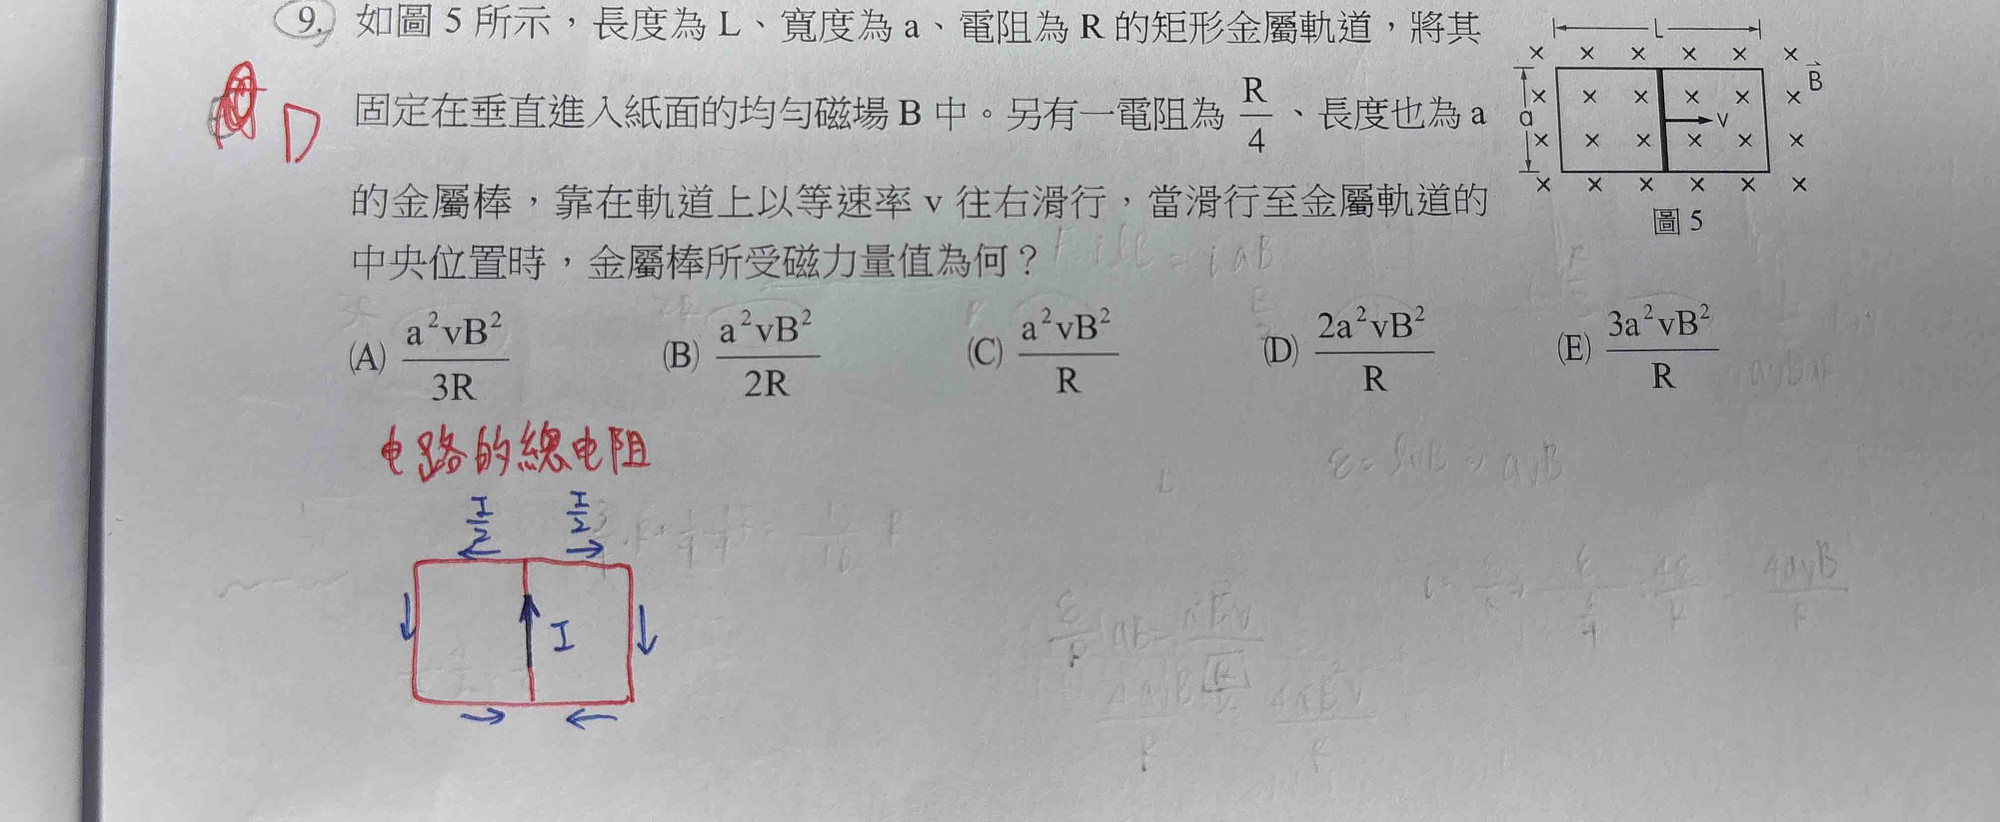 9. 如圖 5 所示，長度為 L、寬度為 a、電阻為 R 的矩形金屬軌道，將其
固定在垂直進入紙面的均勻磁場 B 中。另有一電阻為 R/4、長度也為 a
的金屬棒，靠在軌道上以等速率 v 往右滑行，當滑行至金屬軌道的
中央位置時，金屬棒所受磁力量值為何？
(A) a²vB²/3R (B) a²vB²/2R (C) a²vB²/R (D) 2a²vB²/R (E) 3a²vB²/R
L
B
a
v
圖 5
D
电路的總电阻
I/2 I/2
I
= iaB
ε = avB
4avB